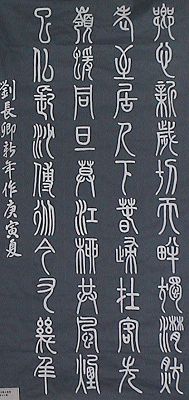 鄉心新歲切天畔獨潸然
老至居人下春歸在客先
嶺猿同旦暮江柳共風煙
已似長沙傅從今又幾年
劉長卿新年作庚寅夏